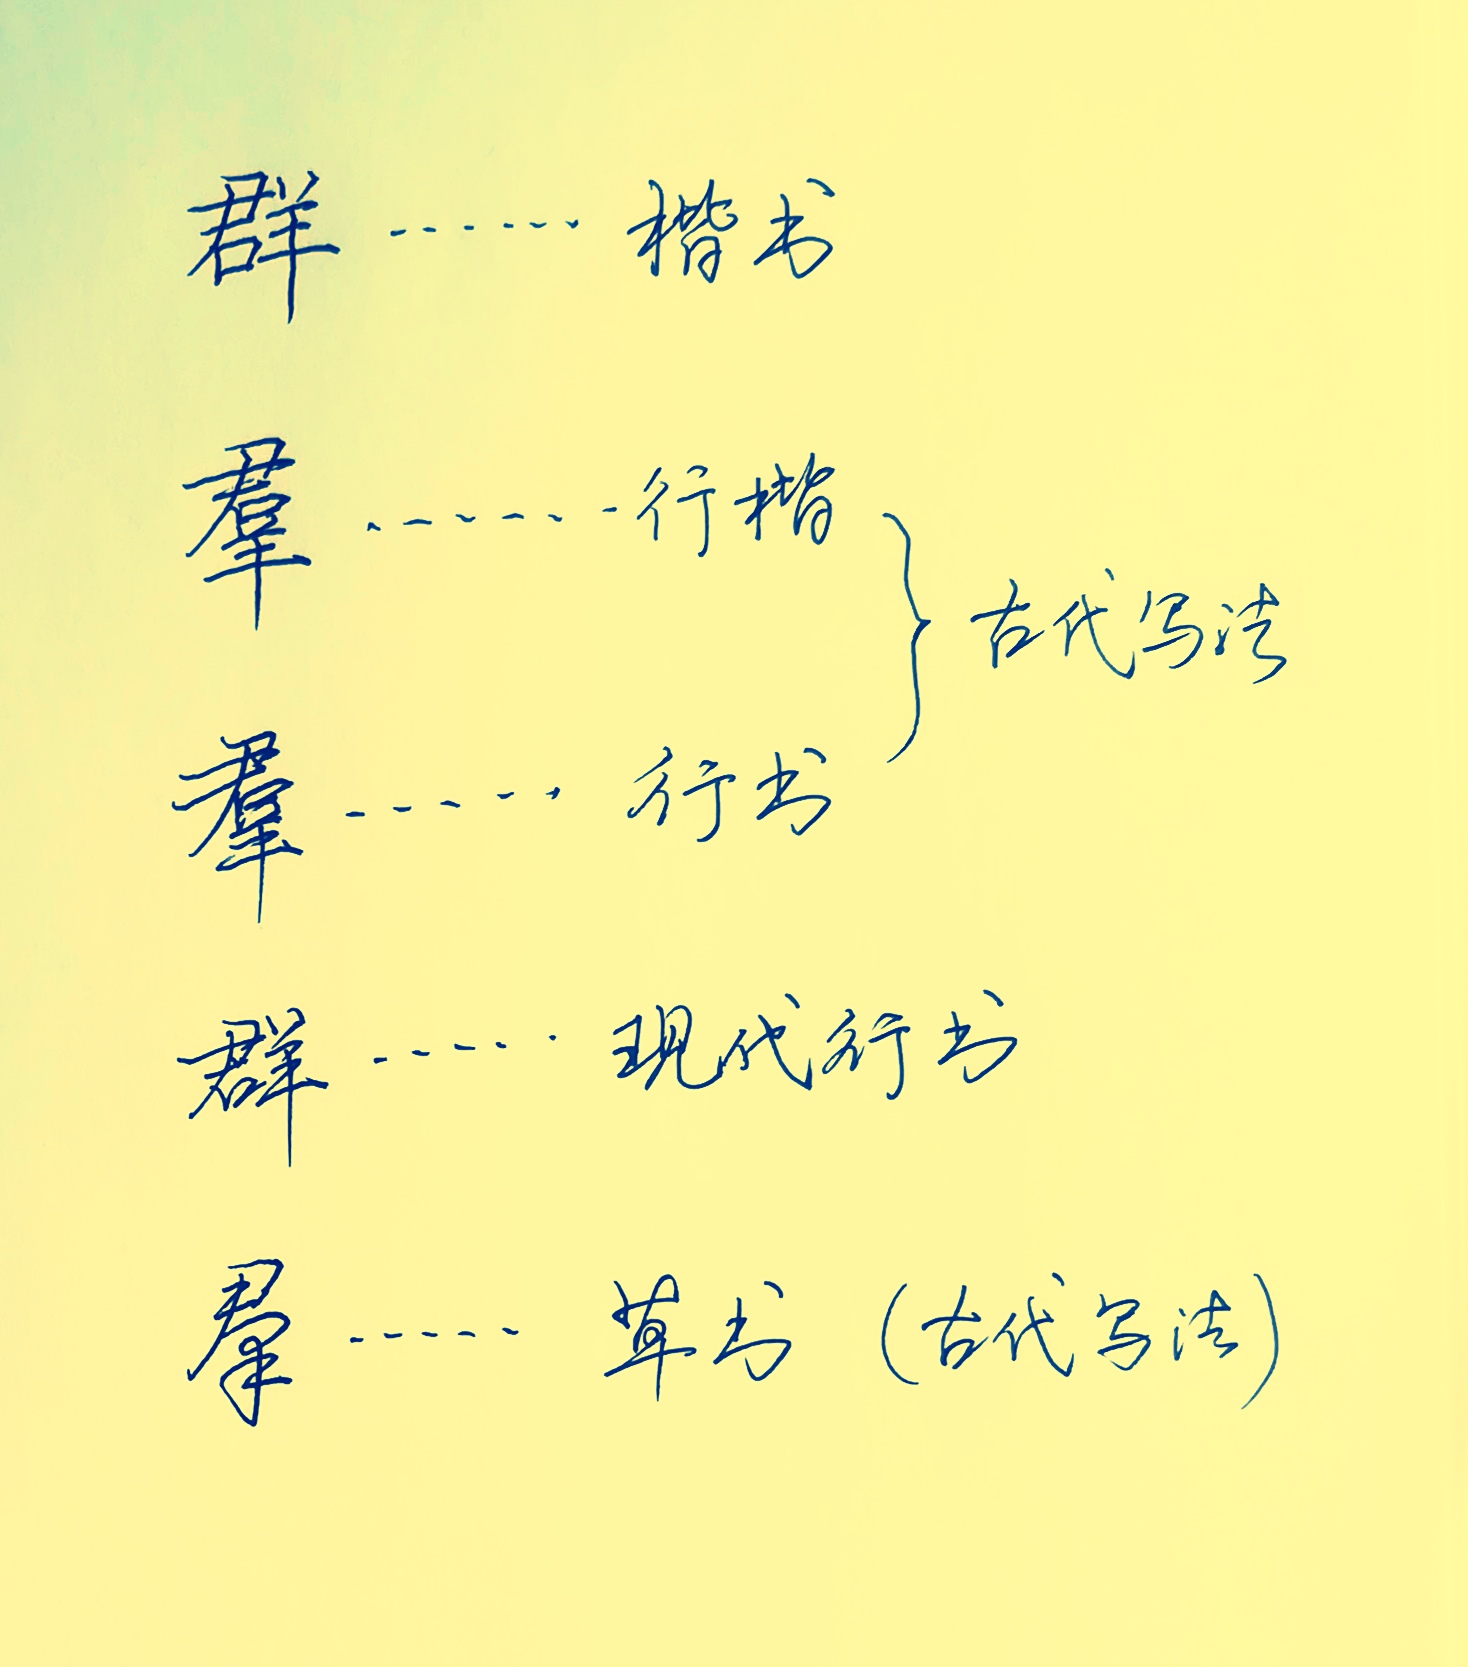 群 ······ 楷书
羣 ······ 行楷
古代写法
羣 ····· 行书
群 ····· 现代行书
羣 ····· 草书 (古代写法)